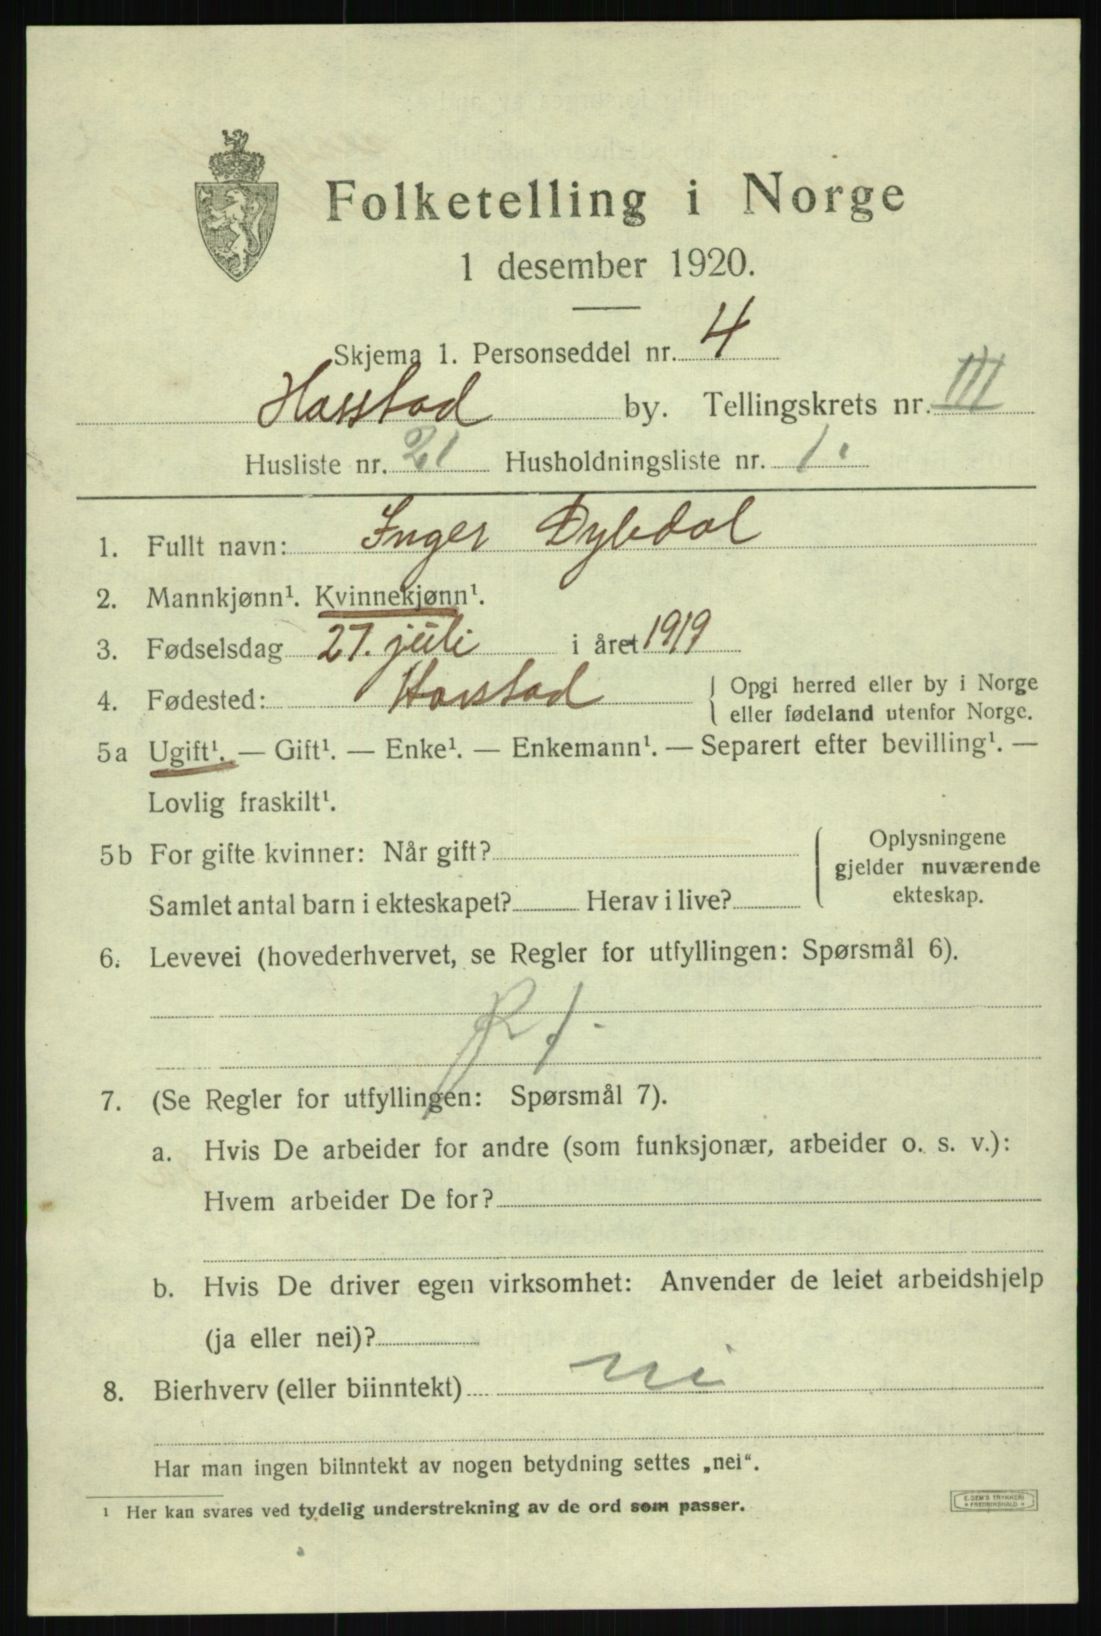 Folketelling i Norge
1 desember 1920.
Skjema 1. Personseddel nr. 4
Harstad by. Tellingskrets nr. III
Husliste nr. 21 Husholdningsliste nr. 1.
1. Fullt navn: Inger Dybdal
2. Mannkjønn¹. Kvinnekjønn¹.
3. Fødselsdag 27. juli i året 1919
4. Fødested: Harstad { Opgi herred eller by i Norge
eller fødeland utenfor Norge.
5a Ugift¹. — Gift¹. — Enke¹. — Enkemann¹. — Separert efter bevilling¹. —
Lovlig fraskilt¹.
5b For gifte kvinner: Når gift?
Samlet antal barn i ekteskapet? Herav i live?
{ Oplysningene
gjelder nuværende
ekteskap.
6. Levevei (hovederhvervet, se Regler for utfyllingen: Spørsmål 6).
7. (Se Regler for utfyllingen: Spørsmål 7).
a. Hvis De arbeider for andre (som funksjonær, arbeider o. s. v.):
Hvem arbeider De for?
b. Hvis De driver egen virksomhet: Anvender de leiet arbeidshjelp
(ja eller nei)?
8. Bierhverv (eller biinntekt)
Har man ingen biinntekt av nogen betydning settes „nei“.
¹ Her kan svares ved tydelig understrekning av de ord som passer.
E. SEM'S TRYKKERI
FREDRIKSHALD